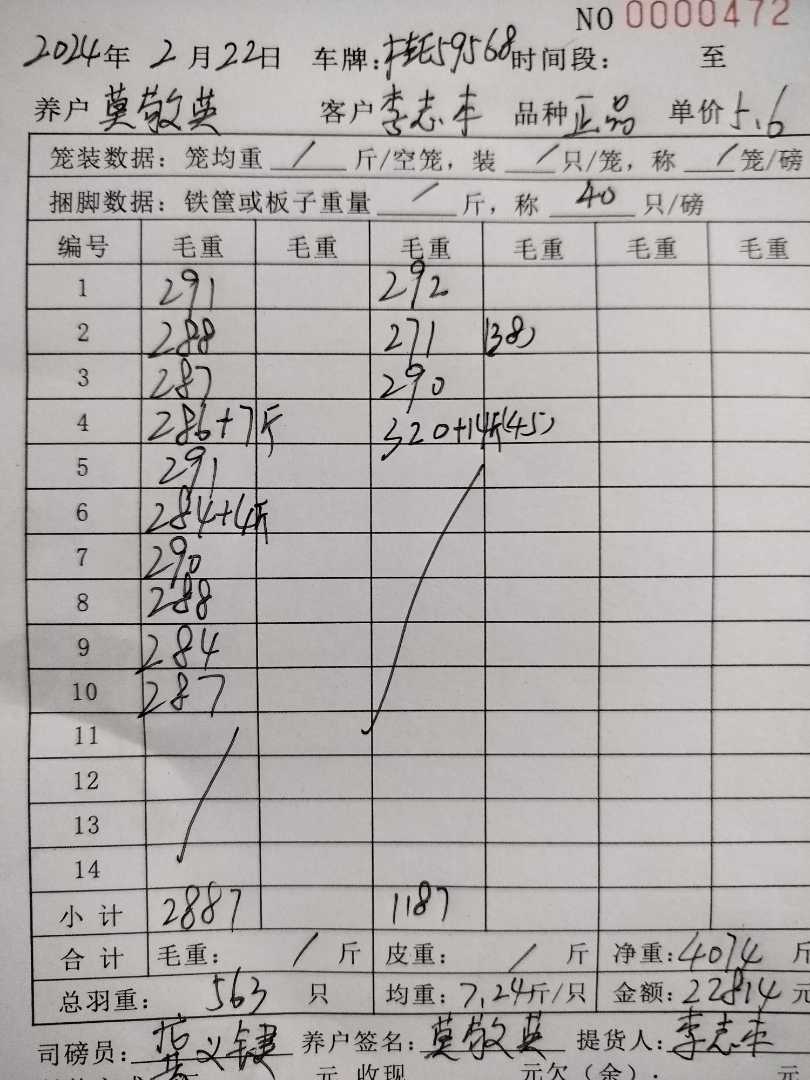 NO 0000472
2024年 2月22日 车牌:桂E59568 时间段: 至
养户 莫敬英 客户 李志丰 品种 正品 单价 5.6
笼装数据: 笼均重 / 斤/空笼, 装 / 只/笼, 称 / 笼/磅
捆脚数据: 铁筐或板子重量 / 斤, 称 40 只/磅
编号 毛重 毛重 毛重 毛重 毛重 毛重
1 291 292
2 288 271 (38)
3 287 290
4 286+7斤 320+14斤(45)
5 291
6 284+4斤
7 290
8 288
9 284
10 287
11
12
13
14
小计 2887 1187
合计 毛重: / 斤 皮重: / 斤 净重:4074 斤
总羽重: 563 只 均重:7.24斤/只 金额:22814元
司磅员: 义键 养户签名: 莫敬英 提货人: 李志丰
元 收现 元欠(余): 元